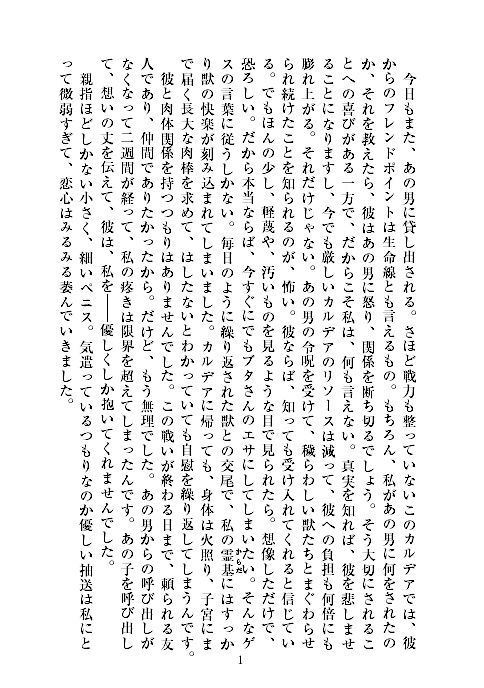 今日もまた、あの男に貸し出される。さほど戦力も整っていないこのカルデアでは、彼
からのフレンドポイントは生命線とも言えるもの。もちろん、私があの男に何をされたの
か、それを教えたら、彼はあの男に怒り、関係を断ち切るでしょう。そう大切にされるこ
とへの喜びがある一方で、だからこそ私は、何も言えない。真実を知れば、彼を悲しませ
ることになりますし、今でも厳しいカルデアのリソースは減って、彼への負担も何倍にも
膨れ上がる。それだけじゃない。あの男の令呪を受けて、穢らわしい獣たちとまぐわらせ
られ続けたことを知られるのが、怖い。彼ならば、知っても受け入れてくれると信じてい
る。でもほんの少し、軽蔑や、汚いものを見るような目で見られたら。想像しただけで、
恐ろしい。だから本当ならば、今すぐにでもブタさんのエサにしてしまいたい。そんなゲ
スの言葉に従うしかない。毎日のように繰り返された獣との交尾で、私の霊基にはすっか
り獣の快楽が刻み込まれてしまいました。カルデアに帰っても、身体は火照り、子宮にま
で届く長大な肉棒を求めて、はしたないとわかっていても自慰を繰り返してしまうんです。
　彼と肉体関係を持つつもりはありませんでした。この戦いが終わる日まで、頼られる友
人であり、仲間でありたかったから。だけど、もう無理でした。あの男からの呼び出しが
なくなって二週間が経って、私の疼きは限界を超えてしまったんです。あの子を呼び出し
て、想いの丈を伝えて、彼は、私を――優しくしか抱いてくれませんでした。
　親指ほどしかない小さく、細いペニス。気遣っているつもりなのか優しい抽送は私にと
って微弱すぎて、恋心はみるみる萎んでいきました。
1